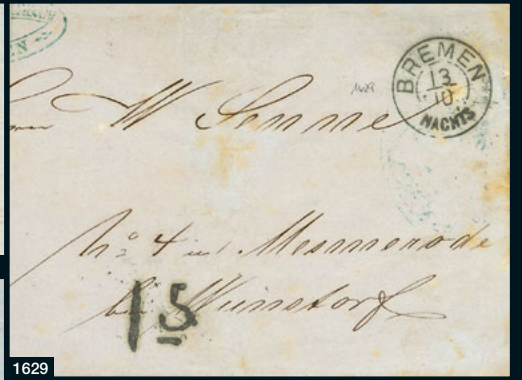 N
BREMEN
13
10
NACHTS
W
No 4 in Mesmerode
bei Wunstorf
15
1629